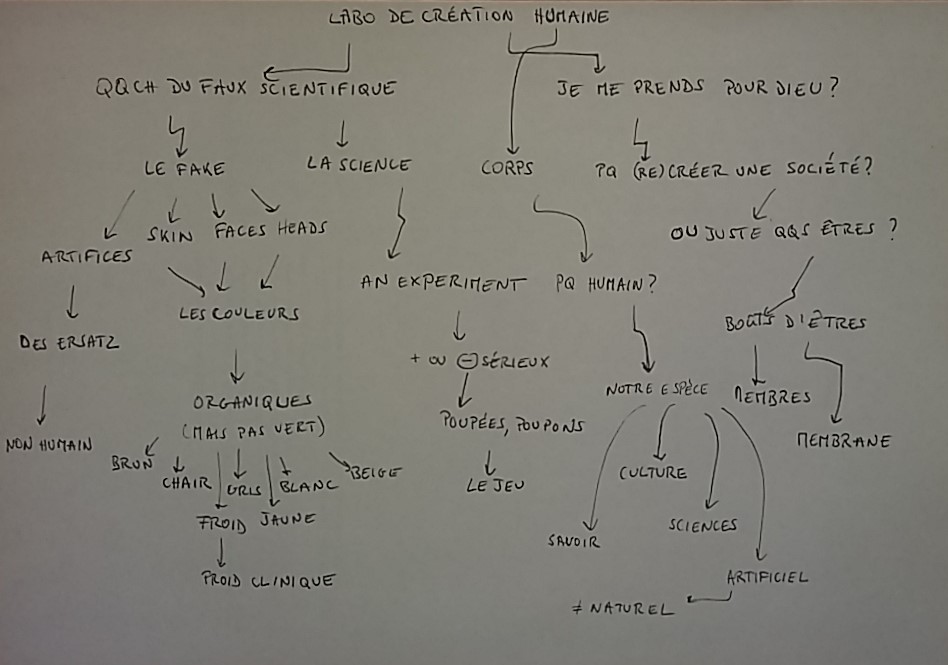 LABO DE CRÉATION HUMAINE
QQCH DU FAUX SCIENTIFIQUE
JE ME PRENDS POUR DIEU ?
LE FAKE
LA SCIENCE
CORPS
PQ (RE)CRÉER UNE SOCIÉTÉ?
ARTIFICES
SKIN
FACES
HEADS
OU JUSTE QQS ÊTRES ?
AN EXPERIMENT
PQ HUMAIN ?
LES COULEURS
BOUTS D'ÊTRES
DES ERSATZ
+ OU ⊖ SÉRIEUX
ORGANIQUES
(MAIS PAS VERT)
NOTRE ESPÈCE
MEMBRES
POUPÉES, POUPONS
MEMBRANE
NON HUMAIN
BRUN
CHAIR
GRIS
BLANC
BEIGE
LE JEU
CULTURE
FROID
JAUNE
SCIENCES
SAVOIR
FROID CLINIQUE
ARTIFICIEL
≠ NATUREL